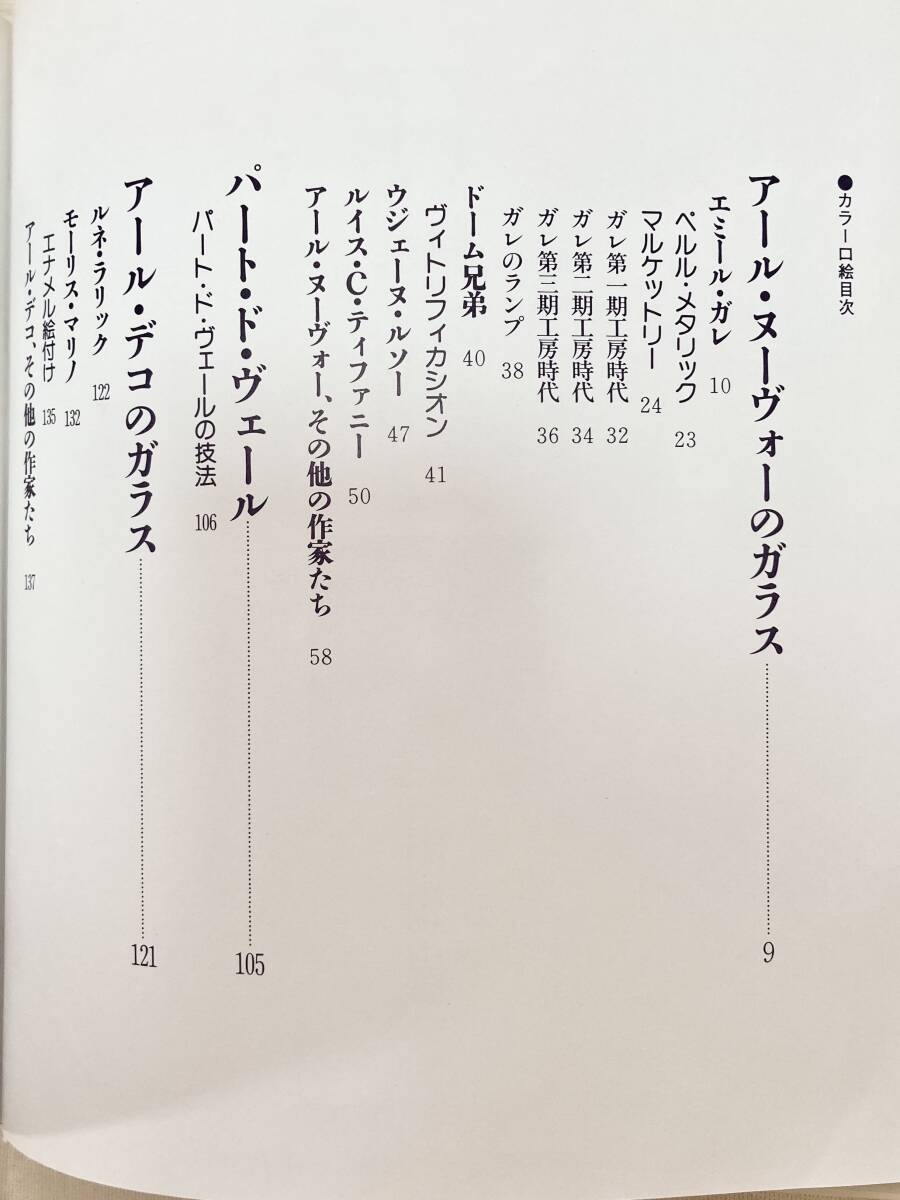 ●カラー口絵目次
アール・ヌーヴォーのガラス……………………9
エミール・ガレ 10
ペルル・メタリック 23
マルケットリー 24
ガレ第一期工房時代 32
ガレ第二期工房時代 34
ガレ第三期工房時代 36
ガレのランプ 38
ドーム兄弟 40
ヴィトリフィカシオン 41
ウジェーヌ・ルソー 47
ルイス・C・ティファニー 50
アール・ヌーヴォー、その他の作家たち 58
パート・ド・ヴェール……………………105
パート・ド・ヴェールの技法 106
アール・デコのガラス……………………121
ルネ・ラリック 122
モーリス・マリノ 132
エナメル絵付け 135
アール・デコ、その他の作家たち 137